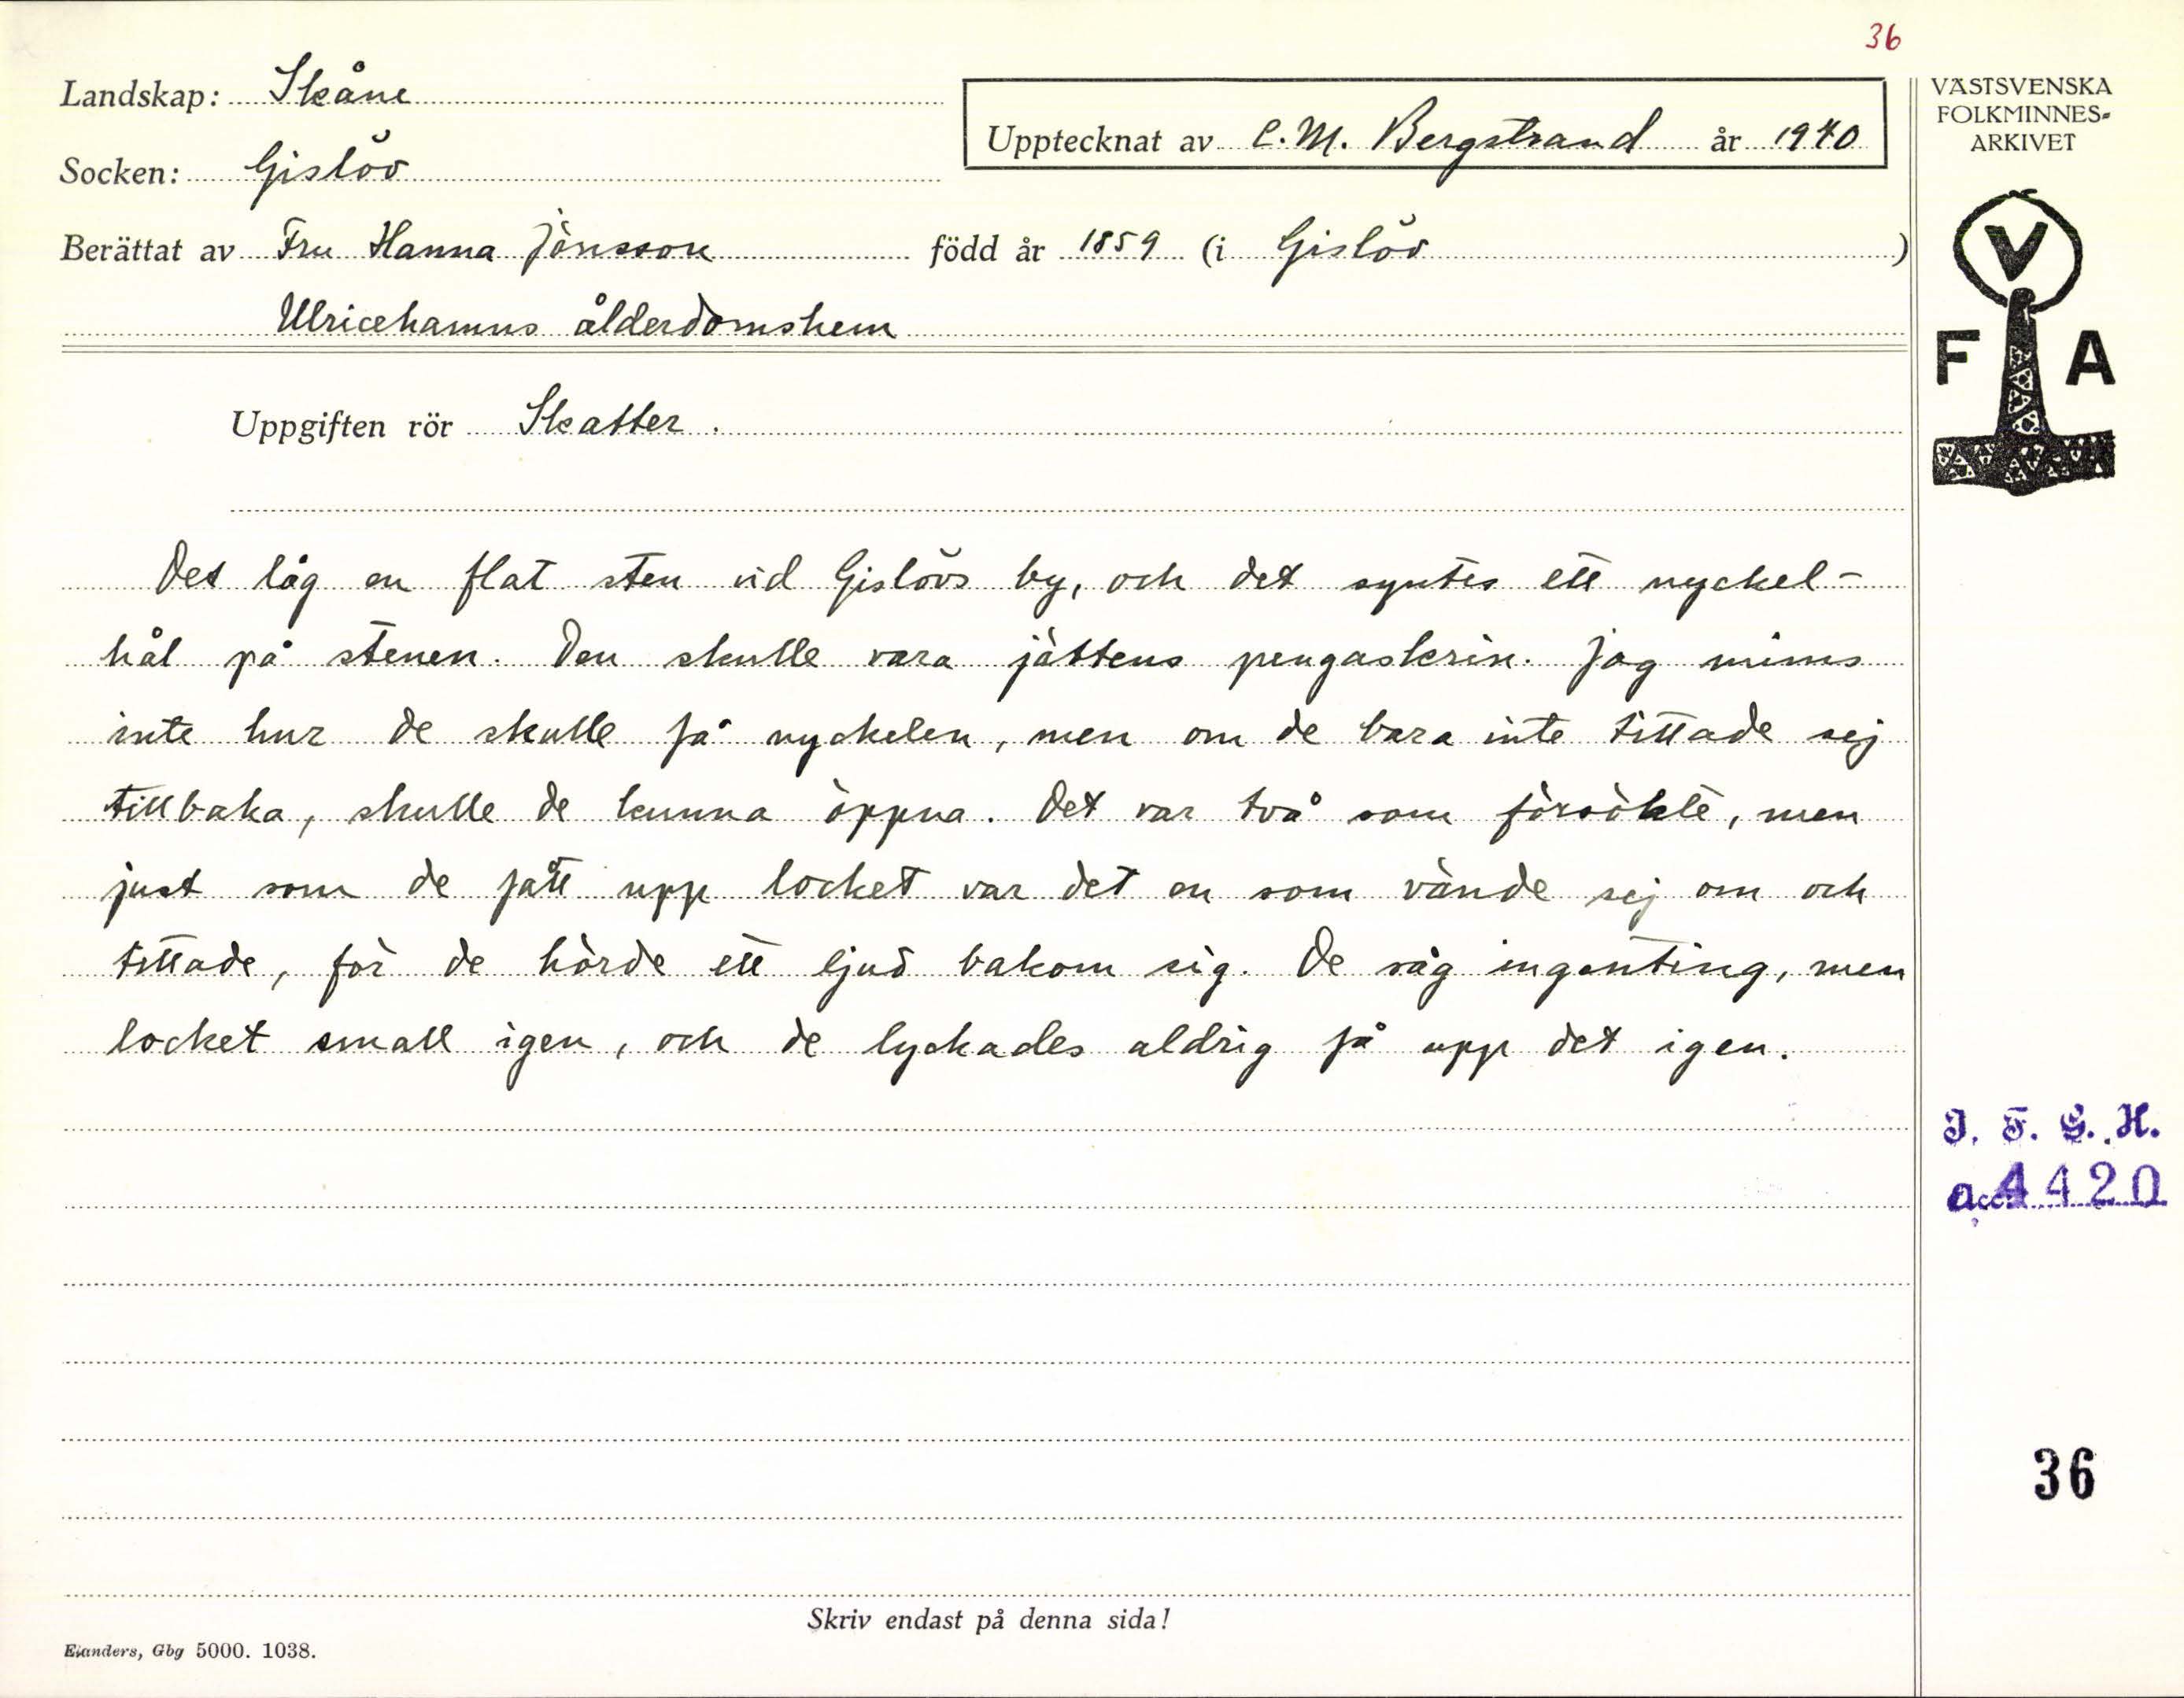 36
Landskap: Skåne
Upptecknat av C. M. Bergstrand år 1940
Socken: Gislöv
Berättat av Fru Hanna Jönsson född år 1859 (i Gislöv)
Ulricehamns ålderdomshem
Uppgiften rör Skatter.
Det låg en flat sten vid Gislövs by, och det syntes ett nyckel-
hål på stenen. Den skulle vara jättens pengaskrin. Jag minns
inte hur de skulle få nyckelen, men om de bara inte tittade sej
tillbaka, skulle de kunna öppna. Det var två som försökte, men
just som de fått upp locket var det en som vände sej om och
tittade, för de hörde ett ljud bakom sig. De såg ingenting, men
locket small igen, och de lyckades aldrig få upp det igen.
Skriv endast på denna sida!
Elanders, Gbg 5000. 1038.
VÄSTSVENSKA
FOLKMINNES-
ARKIVET
V
F A
I. F. G. H.
acc. 4420
36